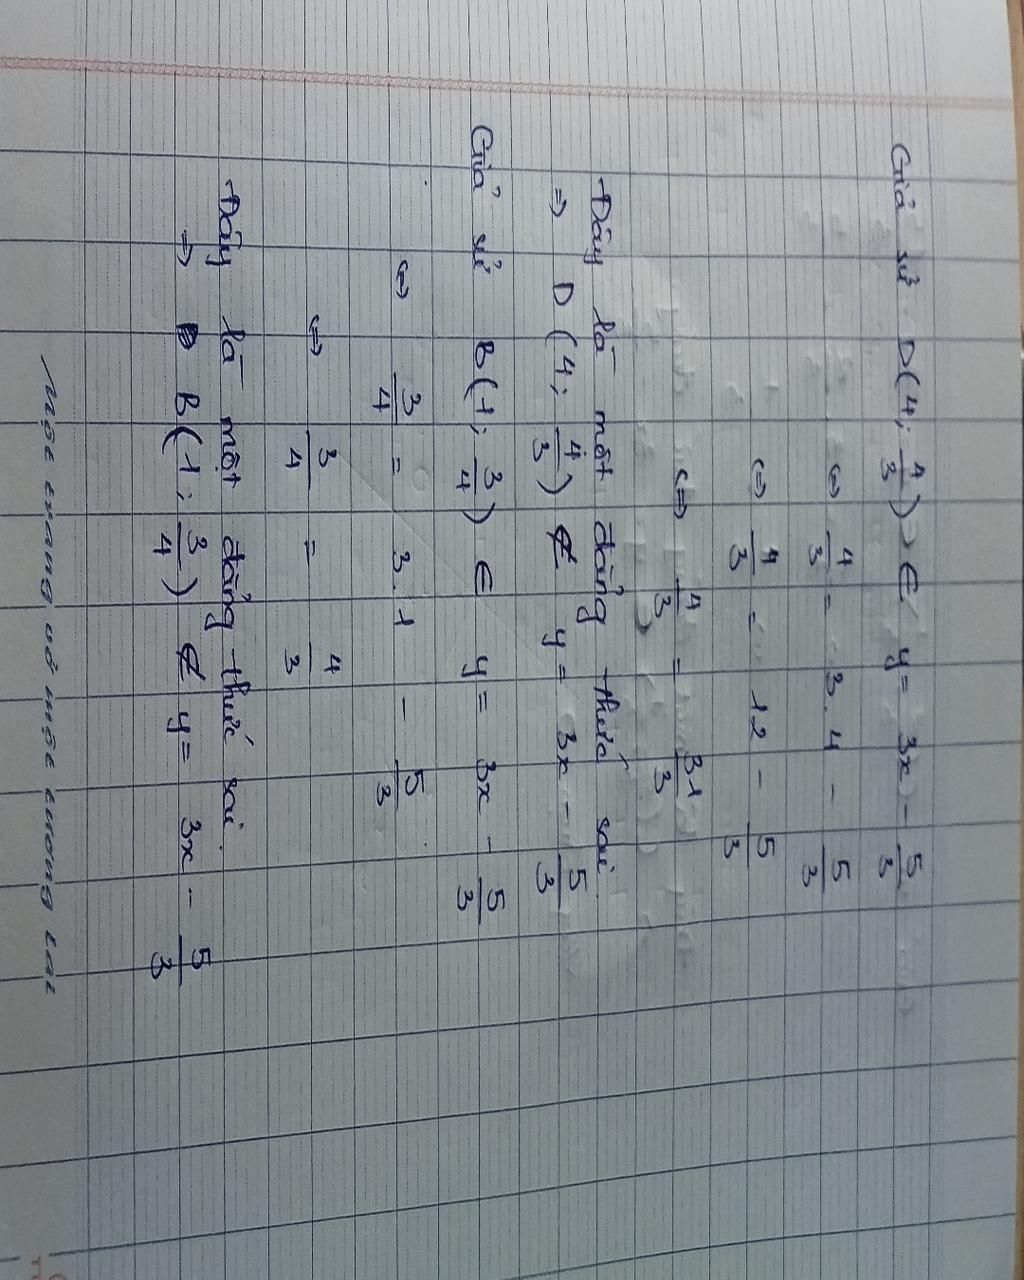 Giả sử D(4; 4/3) ∈ y = 3x - 5/3
⇔ 4/3 = 3.4 - 5/3
⇔ 4/3 = 12 - 5/3
⇔ 4/3 = 31/3
Đây là một đẳng thức sai.
⇒ D(4; 4/3) ∉ y = 3x - 5/3
Giả sử B(1; 3/4) ∈ y = 3x - 5/3
⇔ 3/4 = 3.1 - 5/3
⇔ 3/4 = 4/3
Đây là một đẳng thức sai.
⇒ B(1; 3/4) ∉ y = 3x - 5/3
Một trang vở một tương lai